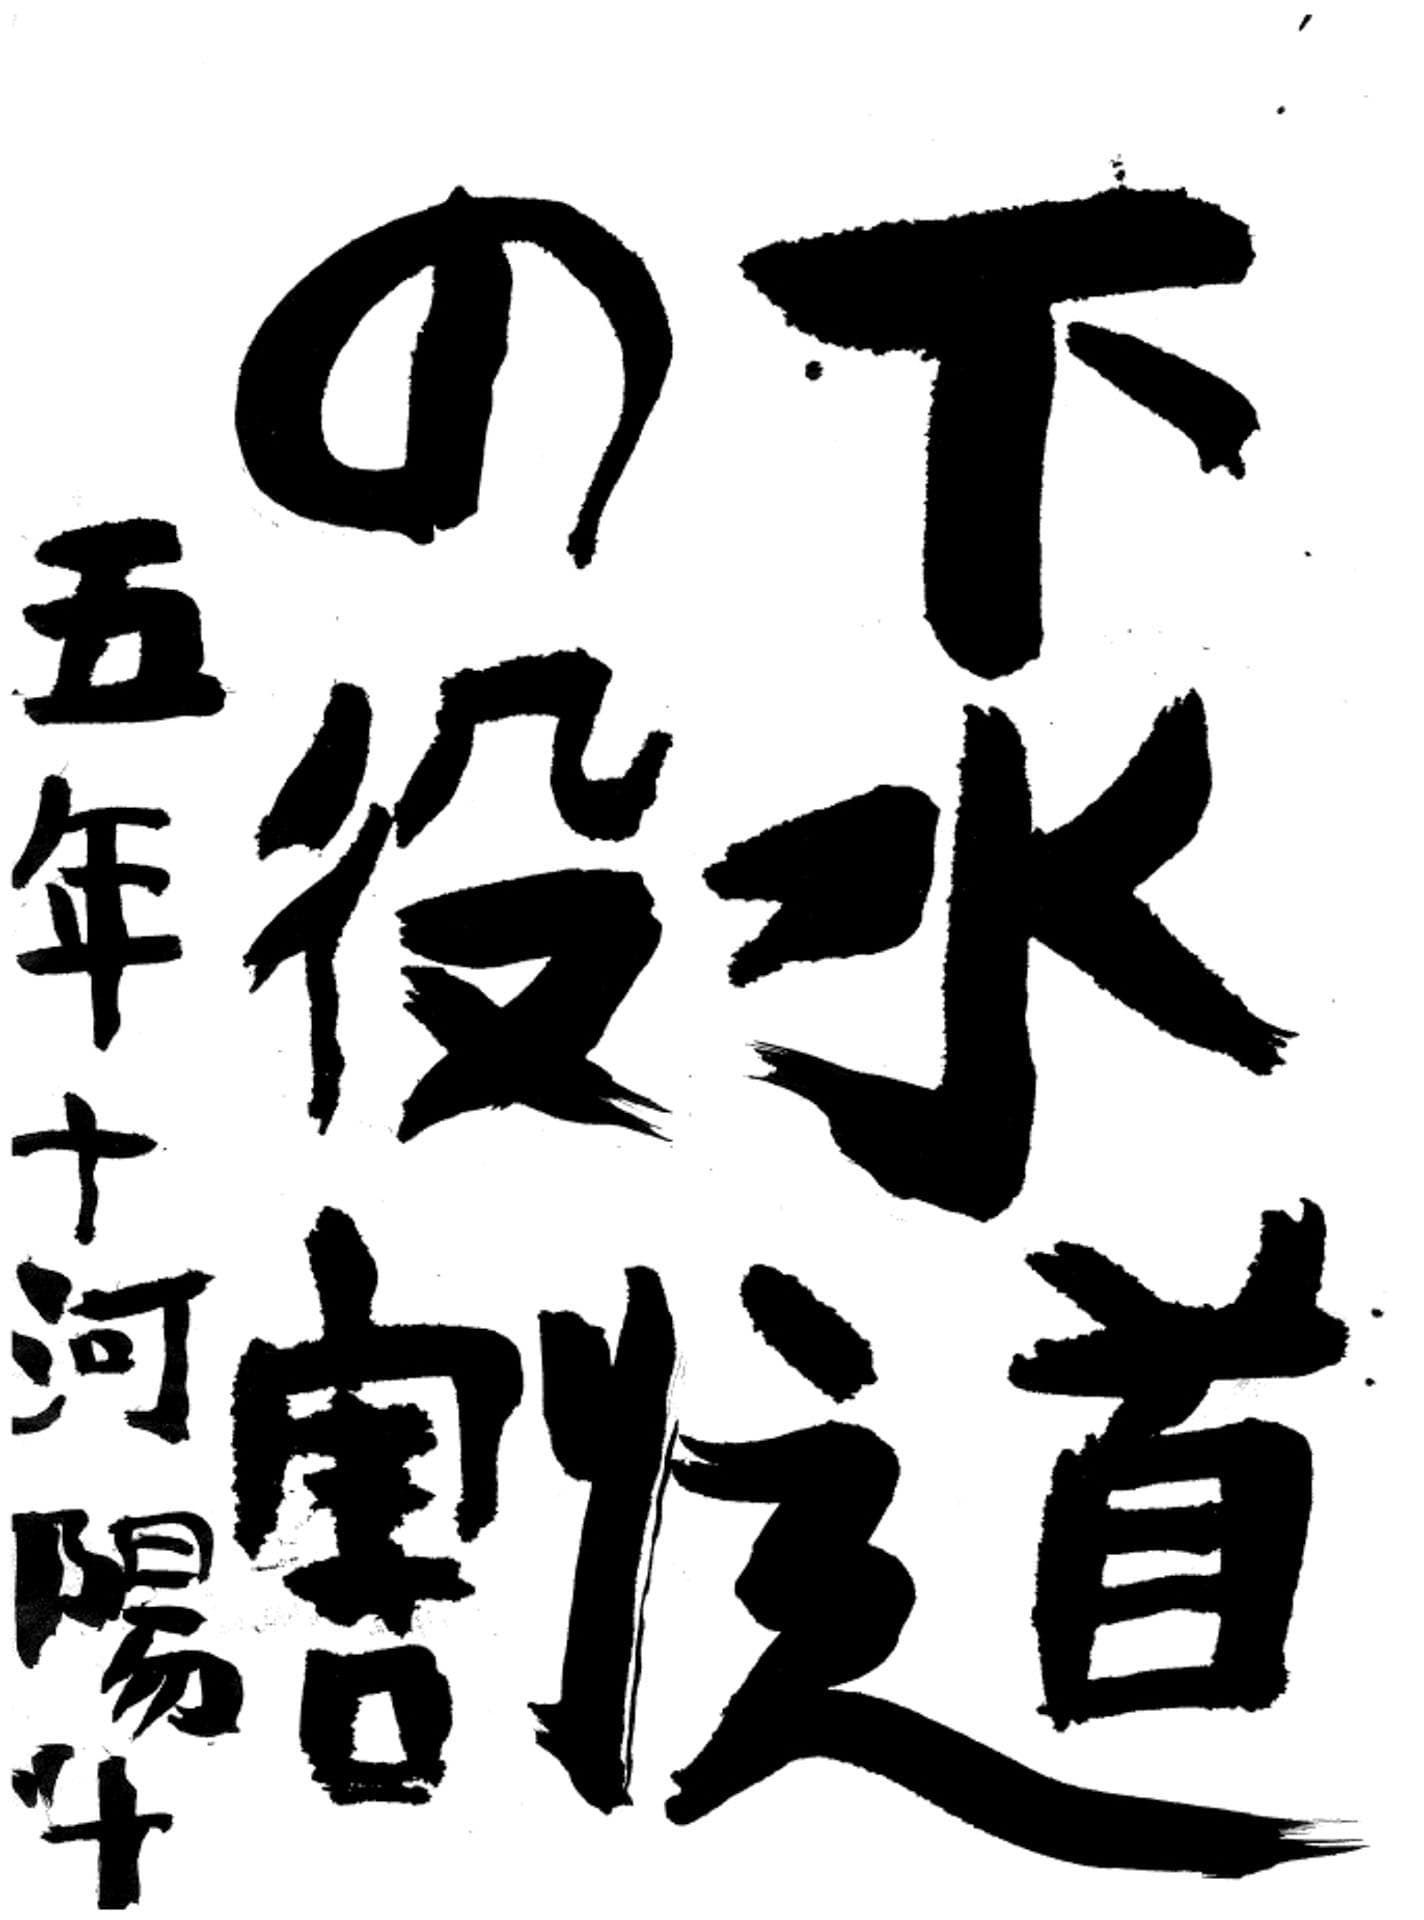 下水道
の役割
五年十河陽斗